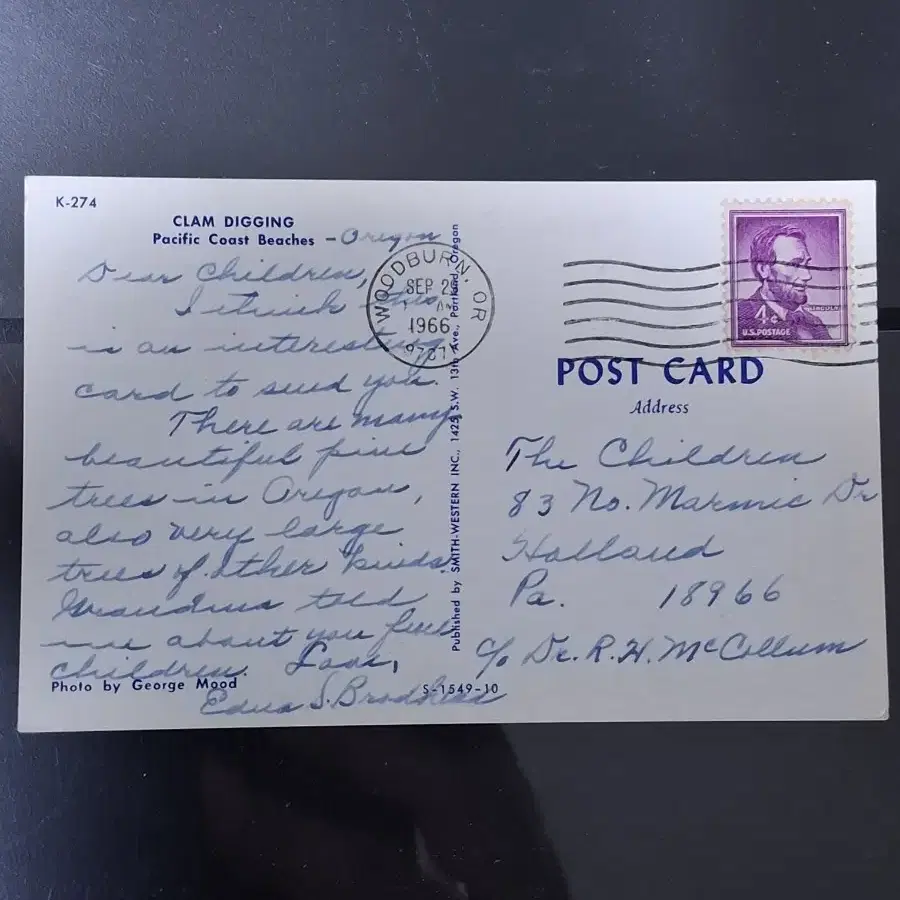 K-274
CLAM DIGGING
Pacific Coast Beaches – Oregon
Dear Children,
I think this
is an interesting
card to send you.
There are many
beautiful pine
trees in Oregon,
also very large
trees of other kinds.
Grandma told
me about you five
children. Love,
Edna S. Brodhead
Photo by George Mood
S-1549-10
Published by SMITH-WESTERN INC., 1425 S.W. 13th Ave., Portland, Oregon
WOODBURN, OR
SEP 29
AM
1966
LINCOLN
4¢
U.S. POSTAGE
POST CARD
Address
The Children
83 No. Marmic Dr
Holland
Pa. 18966
c/o Dr. R. H. McCollum